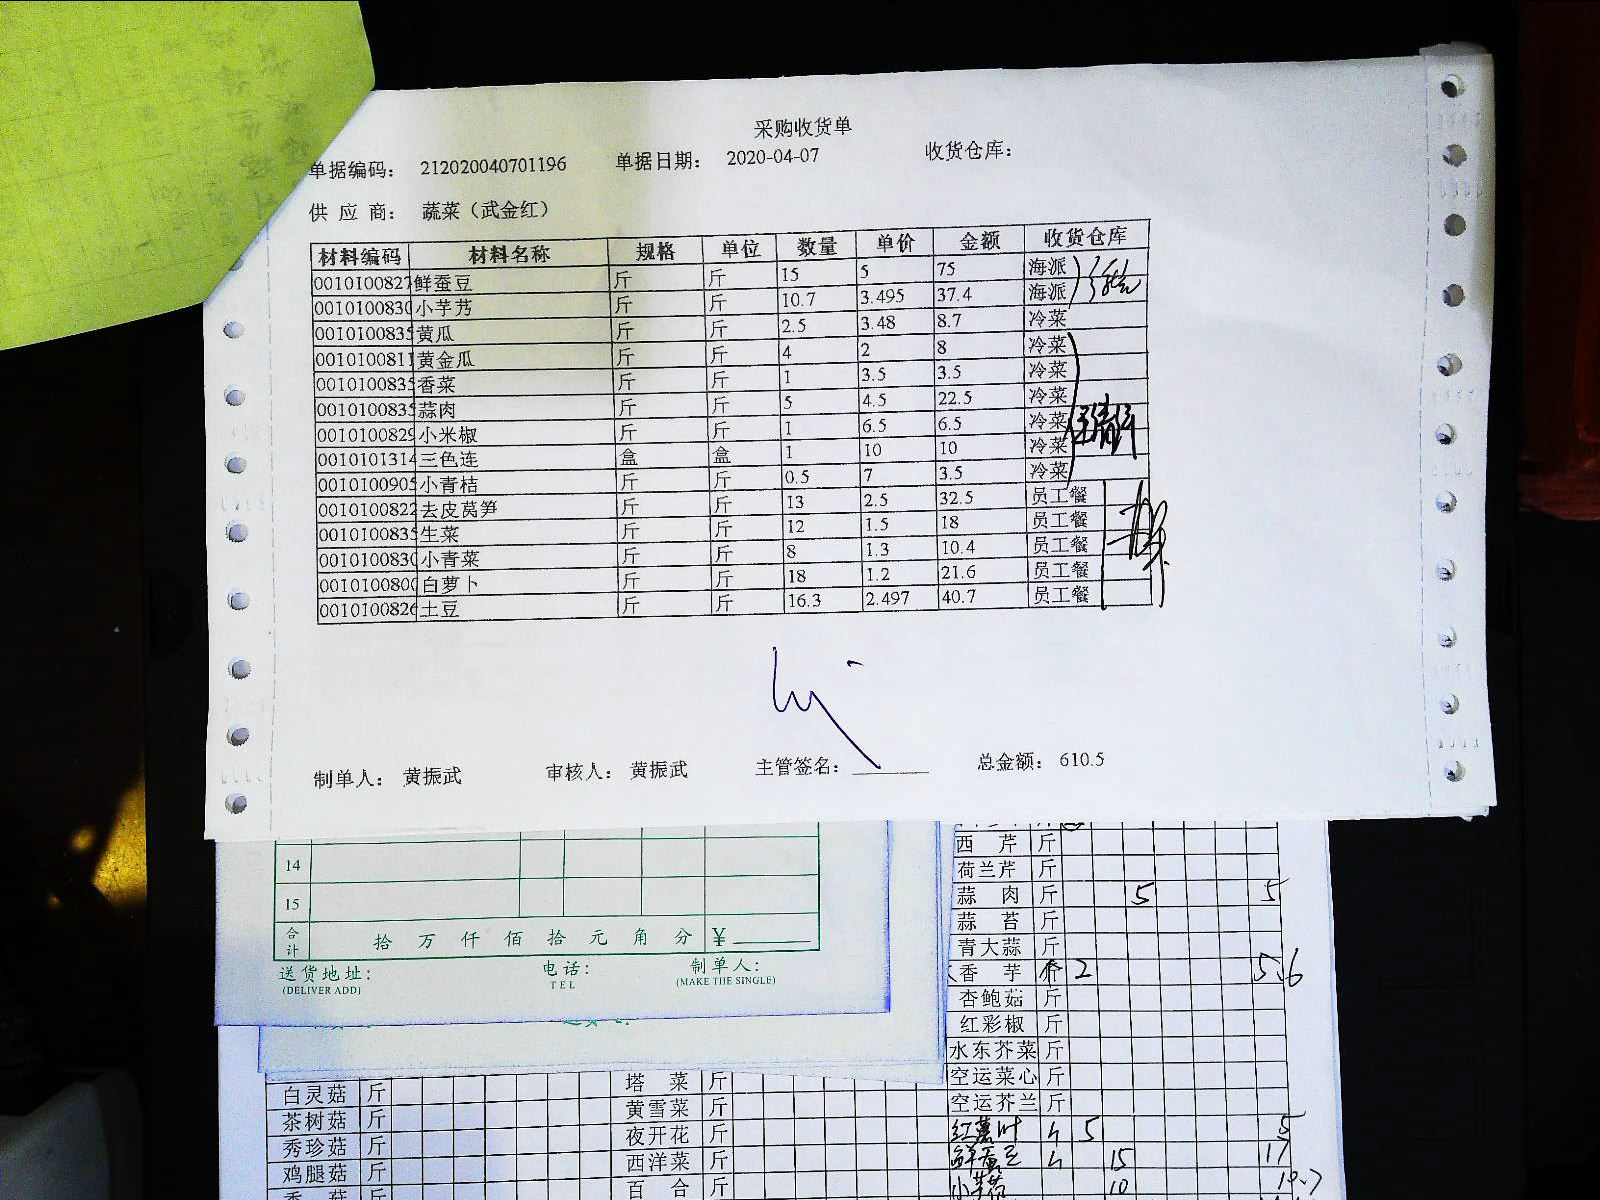 采购收货单
单据编码： 212020040701196 单据日期： 2020-04-07 收货仓库：
供 应 商： 蔬菜（武金红）
材料编码 材料名称 规格 单位 数量 单价 金额 收货仓库
0010100827 鲜蚕豆 斤 斤 15 5 75 海派
0010100830 小芋艿 斤 斤 10.7 3.495 37.4 海派
0010100835 黄瓜 斤 斤 2.5 3.48 8.7 冷菜
0010100811 黄金瓜 斤 斤 4 2 8 冷菜
0010100835 香菜 斤 斤 1 3.5 3.5 冷菜
0010100835 蒜肉 斤 斤 5 4.5 22.5 冷菜
0010100829 小米椒 斤 斤 1 6.5 6.5 冷菜
0010101314 三色连 盒 盒 1 10 10 冷菜
0010100905 小青桔 斤 斤 0.5 7 3.5 冷菜
0010100822 去皮莴笋 斤 斤 13 2.5 32.5 员工餐
0010100835 生菜 斤 斤 12 1.5 18 员工餐
0010100830 小青菜 斤 斤 8 1.3 10.4 员工餐
0010100800 白萝卜 斤 斤 18 1.2 21.6 员工餐
0010100826 土豆 斤 斤 16.3 2.497 40.7 员工餐
制单人： 黄振武 审核人： 黄振武 主管签名： 总金额： 610.5
14
15
合计 拾 万 仟 佰 拾 元 角 分 ¥
送货地址： 电话： 制单人：
(DELIVER ADD) TEL (MAKE THE SINGLE)
西 芹 斤
荷兰芹 斤
蒜 肉 斤 5 5
蒜 苔 斤
青大蒜 斤
香 芋 2 5.6
杏鲍菇 斤
红彩椒 斤
水东芥菜 斤
空运菜心 斤
空运芥兰 斤
红薯叶 5 5
鲜蚕豆 15 17
小芋艿 10 10.7
白灵菇 斤 塔 菜 斤
茶树菇 斤 黄雪菜 斤
秀珍菇 斤 夜开花 斤
鸡腿菇 斤 西洋菜 斤
百 合 斤